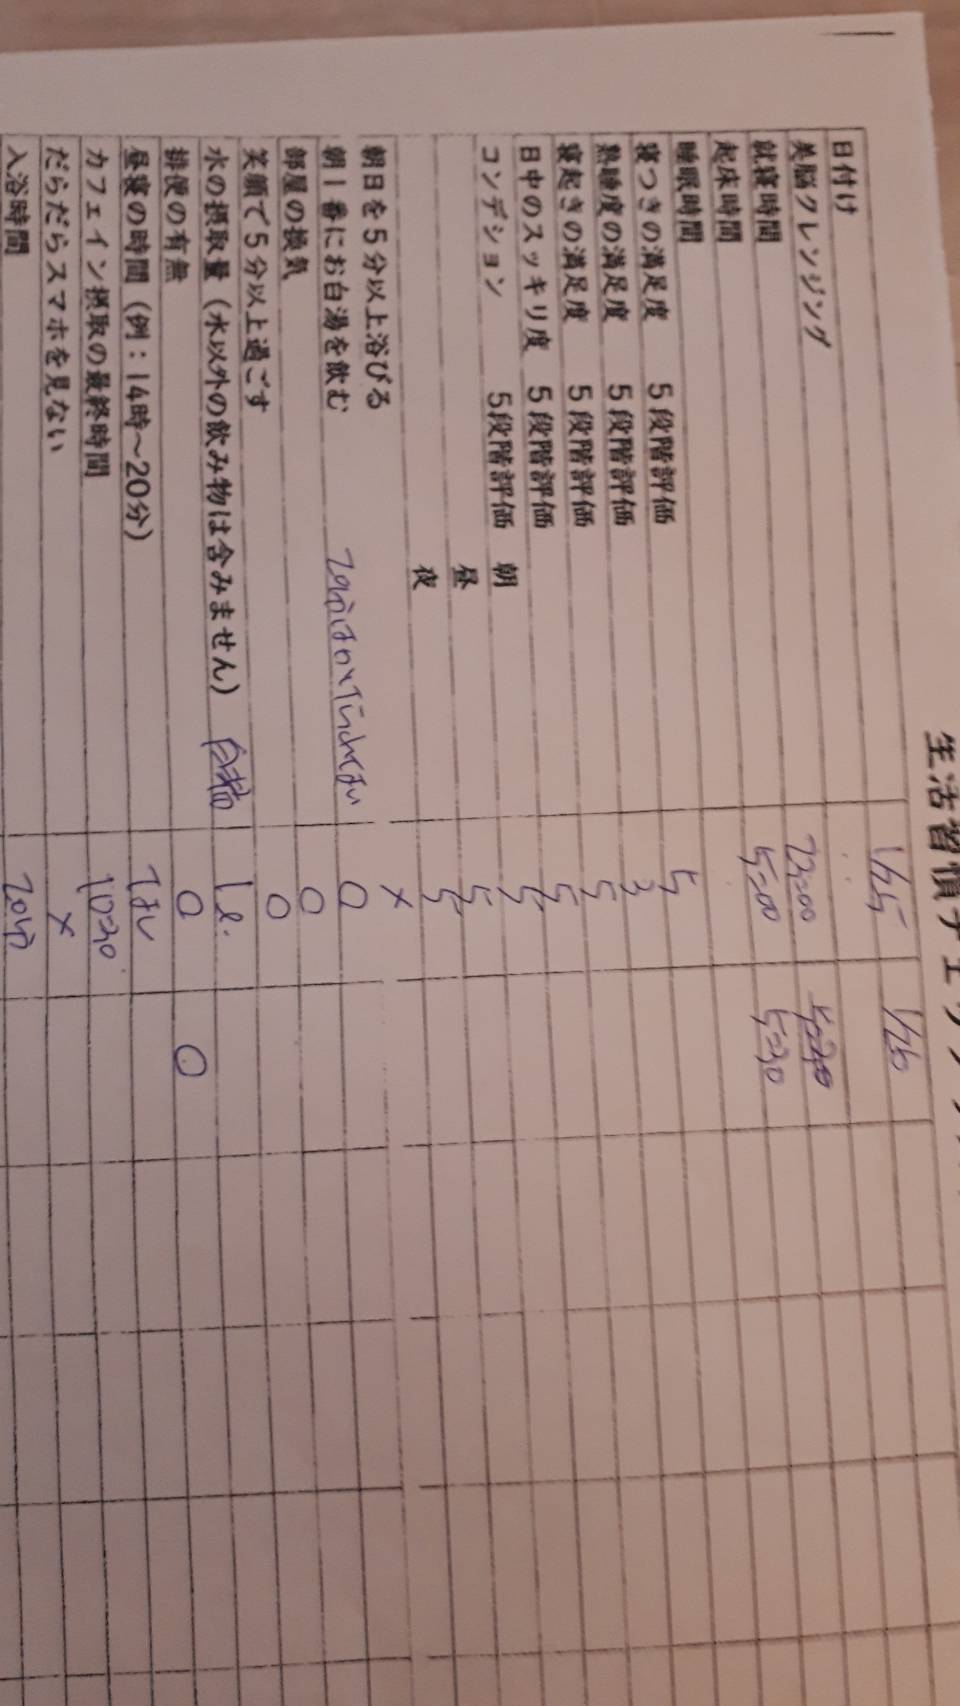 生活習慣チェック
日付け 1/25 1/26
美脳クレンジング
就寝時間 22:00
起床時間 5:00 5:30
睡眠時間
寝つきの満足度 5段階評価 5
熟睡度の満足度 5段階評価 3
寝起きの満足度 5段階評価 5
日中のスッキリ度 5段階評価 5
コンデション 5段階評価 朝 5
昼 5
夜 5
朝日を5分以上浴びる ×
朝1番にお白湯を飲む ○
部屋の換気 ○
笑顔で5分以上過ごす ○
水の摂取量(水以外の飲み物は含みません) 1ℓ
排便の有無 ○ ○
昼寝の時間(例:14時~20分) なし
カフェイン摂取の最終時間 10:30
だらだらスマホを見ない ×
入浴時間 20分